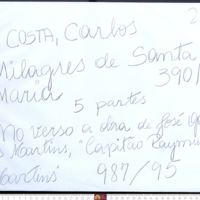 2
COSTA, Carlos
Milagres de Santa
Maria 390/
5 partes
No verso a obra de José
Martins, "Capitão Raymu
Martins" 987/95